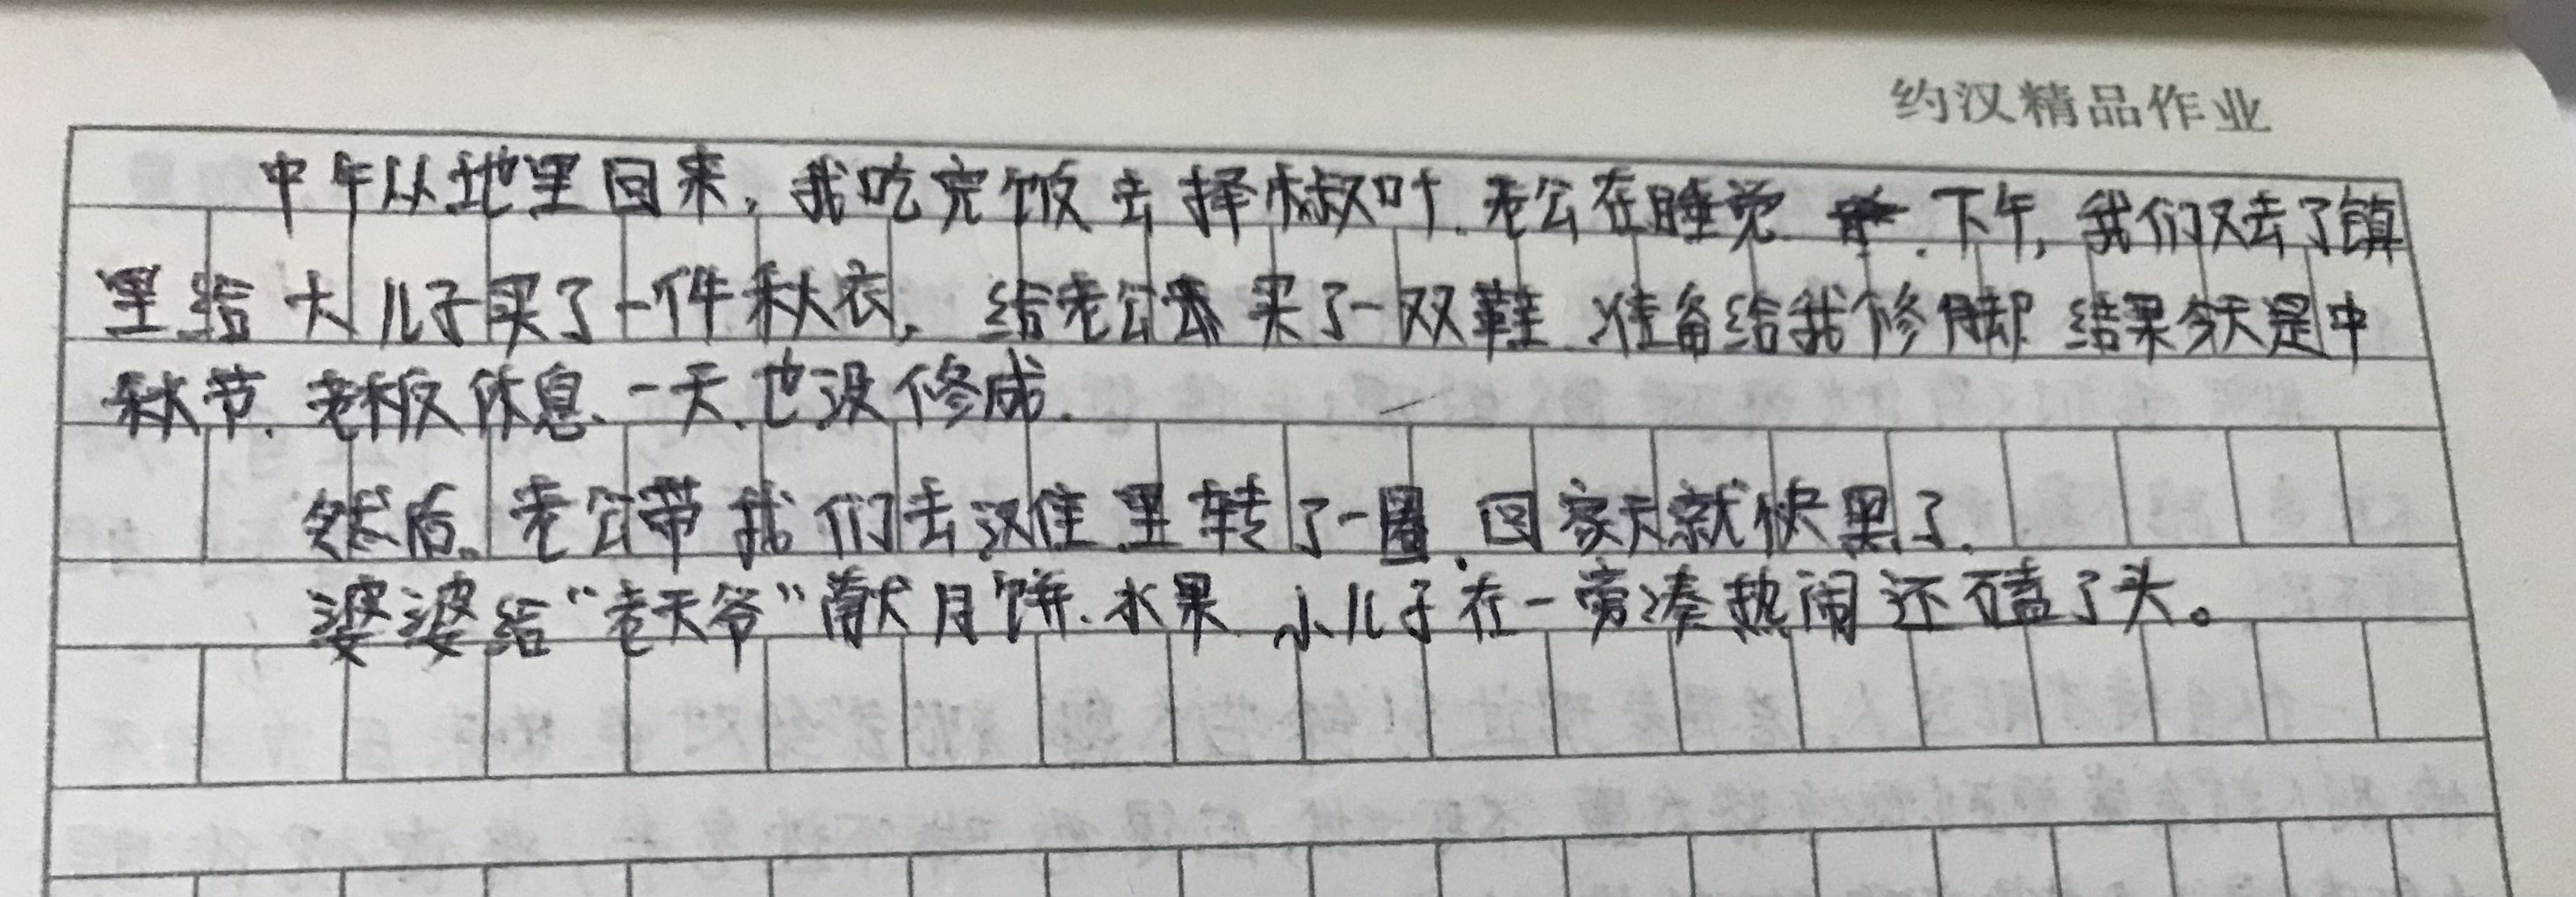 约汉精品作业
中午从地里回来,我吃完饭去择椒叶.老公在睡觉.下午,我们又去了镇
里给大儿子买了一件秋衣,给老公买了一双鞋.准备给我修脚 结果今天是中
秋节.老板休息、一天.也没修成.
然后、老公带我们去汉隹里转了一圈.回家天就快黑了.
婆婆给“老天爷”献月饼.水果 小儿子在一旁凑热闹还磕了头。